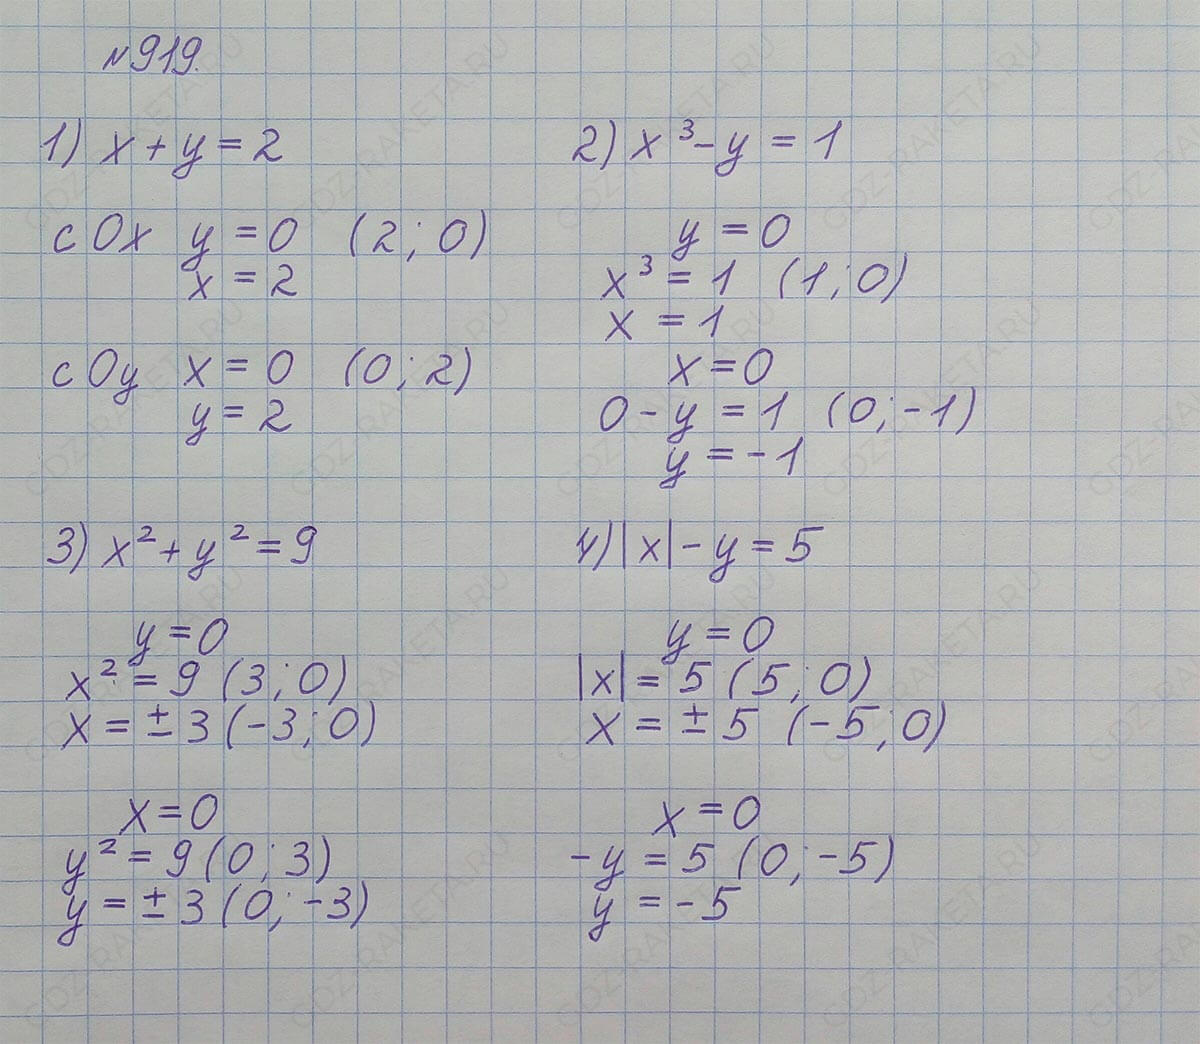 №919.
1) x + y = 2
с Ox y = 0 (2; 0)
x = 2
с Oy x = 0 (0; 2)
y = 2
2) x³ - y = 1
y = 0
x³ = 1 (1; 0)
x = 1
x = 0
0 - y = 1 (0; -1)
y = -1
3) x² + y² = 9
y = 0
x² = 9 (3; 0)
x = ± 3 (-3; 0)
x = 0
y² = 9 (0; 3)
y = ± 3 (0; -3)
4) |x| - y = 5
y = 0
|x| = 5 (5; 0)
x = ± 5 (-5; 0)
x = 0
-y = 5 (0; -5)
y = -5
GDZ-RAKETA.RU